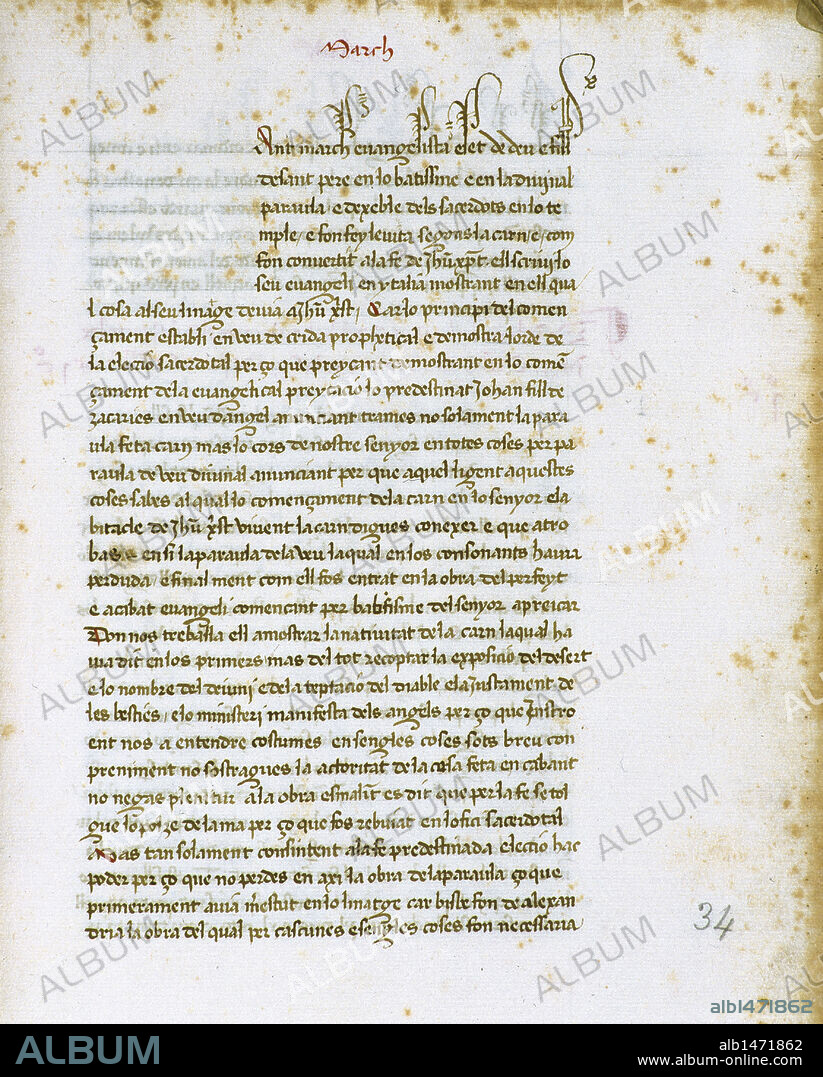 March
Ant march evangelista elet de deu e fill
de sant pere en lo batisme e en la divinal
paraula e dexeble dels sacerdots en lo te
mple e fon fey levita segons la carn e com
fon convertit a la fe de Jhu xpt ell scrivi lo
seu evangeli en ytalia mostrant en ell qua
l cosa al seu linatge devia a Jhu xst Car lo principi del comen
çament establi en veu de crida prophetical e demostra lorde de
la electio sacerdotal per ço que preycant demostrant en lo comē
çament de la evangelical preycacio lo predestinat Johan fill de
zacaries en veu dangel anunciant trames no solament la para
ula feta carn mas lo cors de nostre senyor en totes coses per pa
raula de veu divinal anunciant per que aquel ligent aquestes
coses sabes al qual lo començament de la carn en lo senyor e la
bitacle de Jhu xst vivent la carn digues conexer e que atro
bas e en si la paraula de la veu la qual en los consonants havia
perduda e final ment com ell fos entrat en la obra del perfeyt
e acabat evangeli comencant per babtisme del senyor a preicar
Don nos treballa ell a mostrar la nativitat de la carn la qual ha
via dit en los primers mas del tot recoptar la expossicio del desert
e lo nombre del deiuni e de la teptacio del diable e la justament de
les besties e lo ministeri manifesta dels angels per ço que Instro
ent nos a entendre costumes en sengles coses sots breu con
preniment no sostragues la actoritat de la cosa feta en cabant
no negas a la obra e finalmt es dit que per la fe se tol
gue lo polze de la ma per ço que fos rebujat en lofici sacerdotal
Mas tan solament consintent a la fe predestinada electio hac
poder per ço que no perdes en axi la obra de la paraula ço que
primerament avia mestut en lo linatge car bisbe fon de alexan
dria la obra del qual per cascunes e sengles coses fon necessaria
34
ALBUM
alb1471862
ALBUM
alb1471862
www.album-online.com